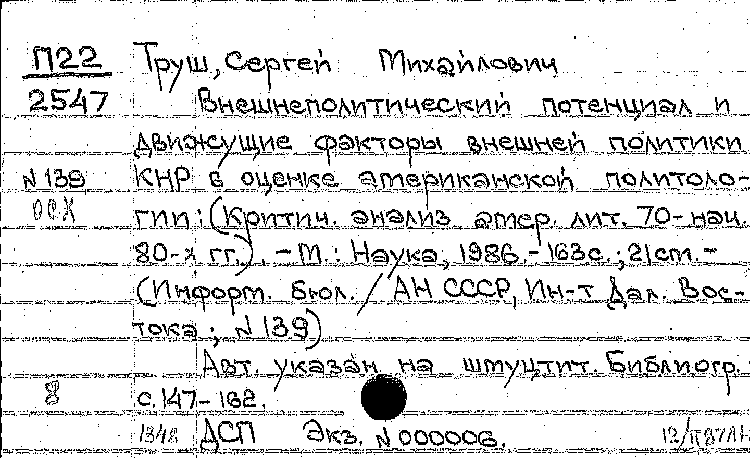 П22 Труш, Сергей Михайлович
2547 Внешнеполитический потенциал и
движущие факторы внешней политики
N 139 КНР в оценке американской политоло-
гии: (Критич. анализ амер. лит. 70-нач.
80-х гг.). - М.: Наука, 1986.- 163с.; 21см.-
(Информ. бюл. / АН СССР, Ин-т Дал. Вос-
тока; N 139)
Авт. указан на шмуцтит. Библиогр.
8 с. 147-162.
1348 ДСП Экз. N 000006.